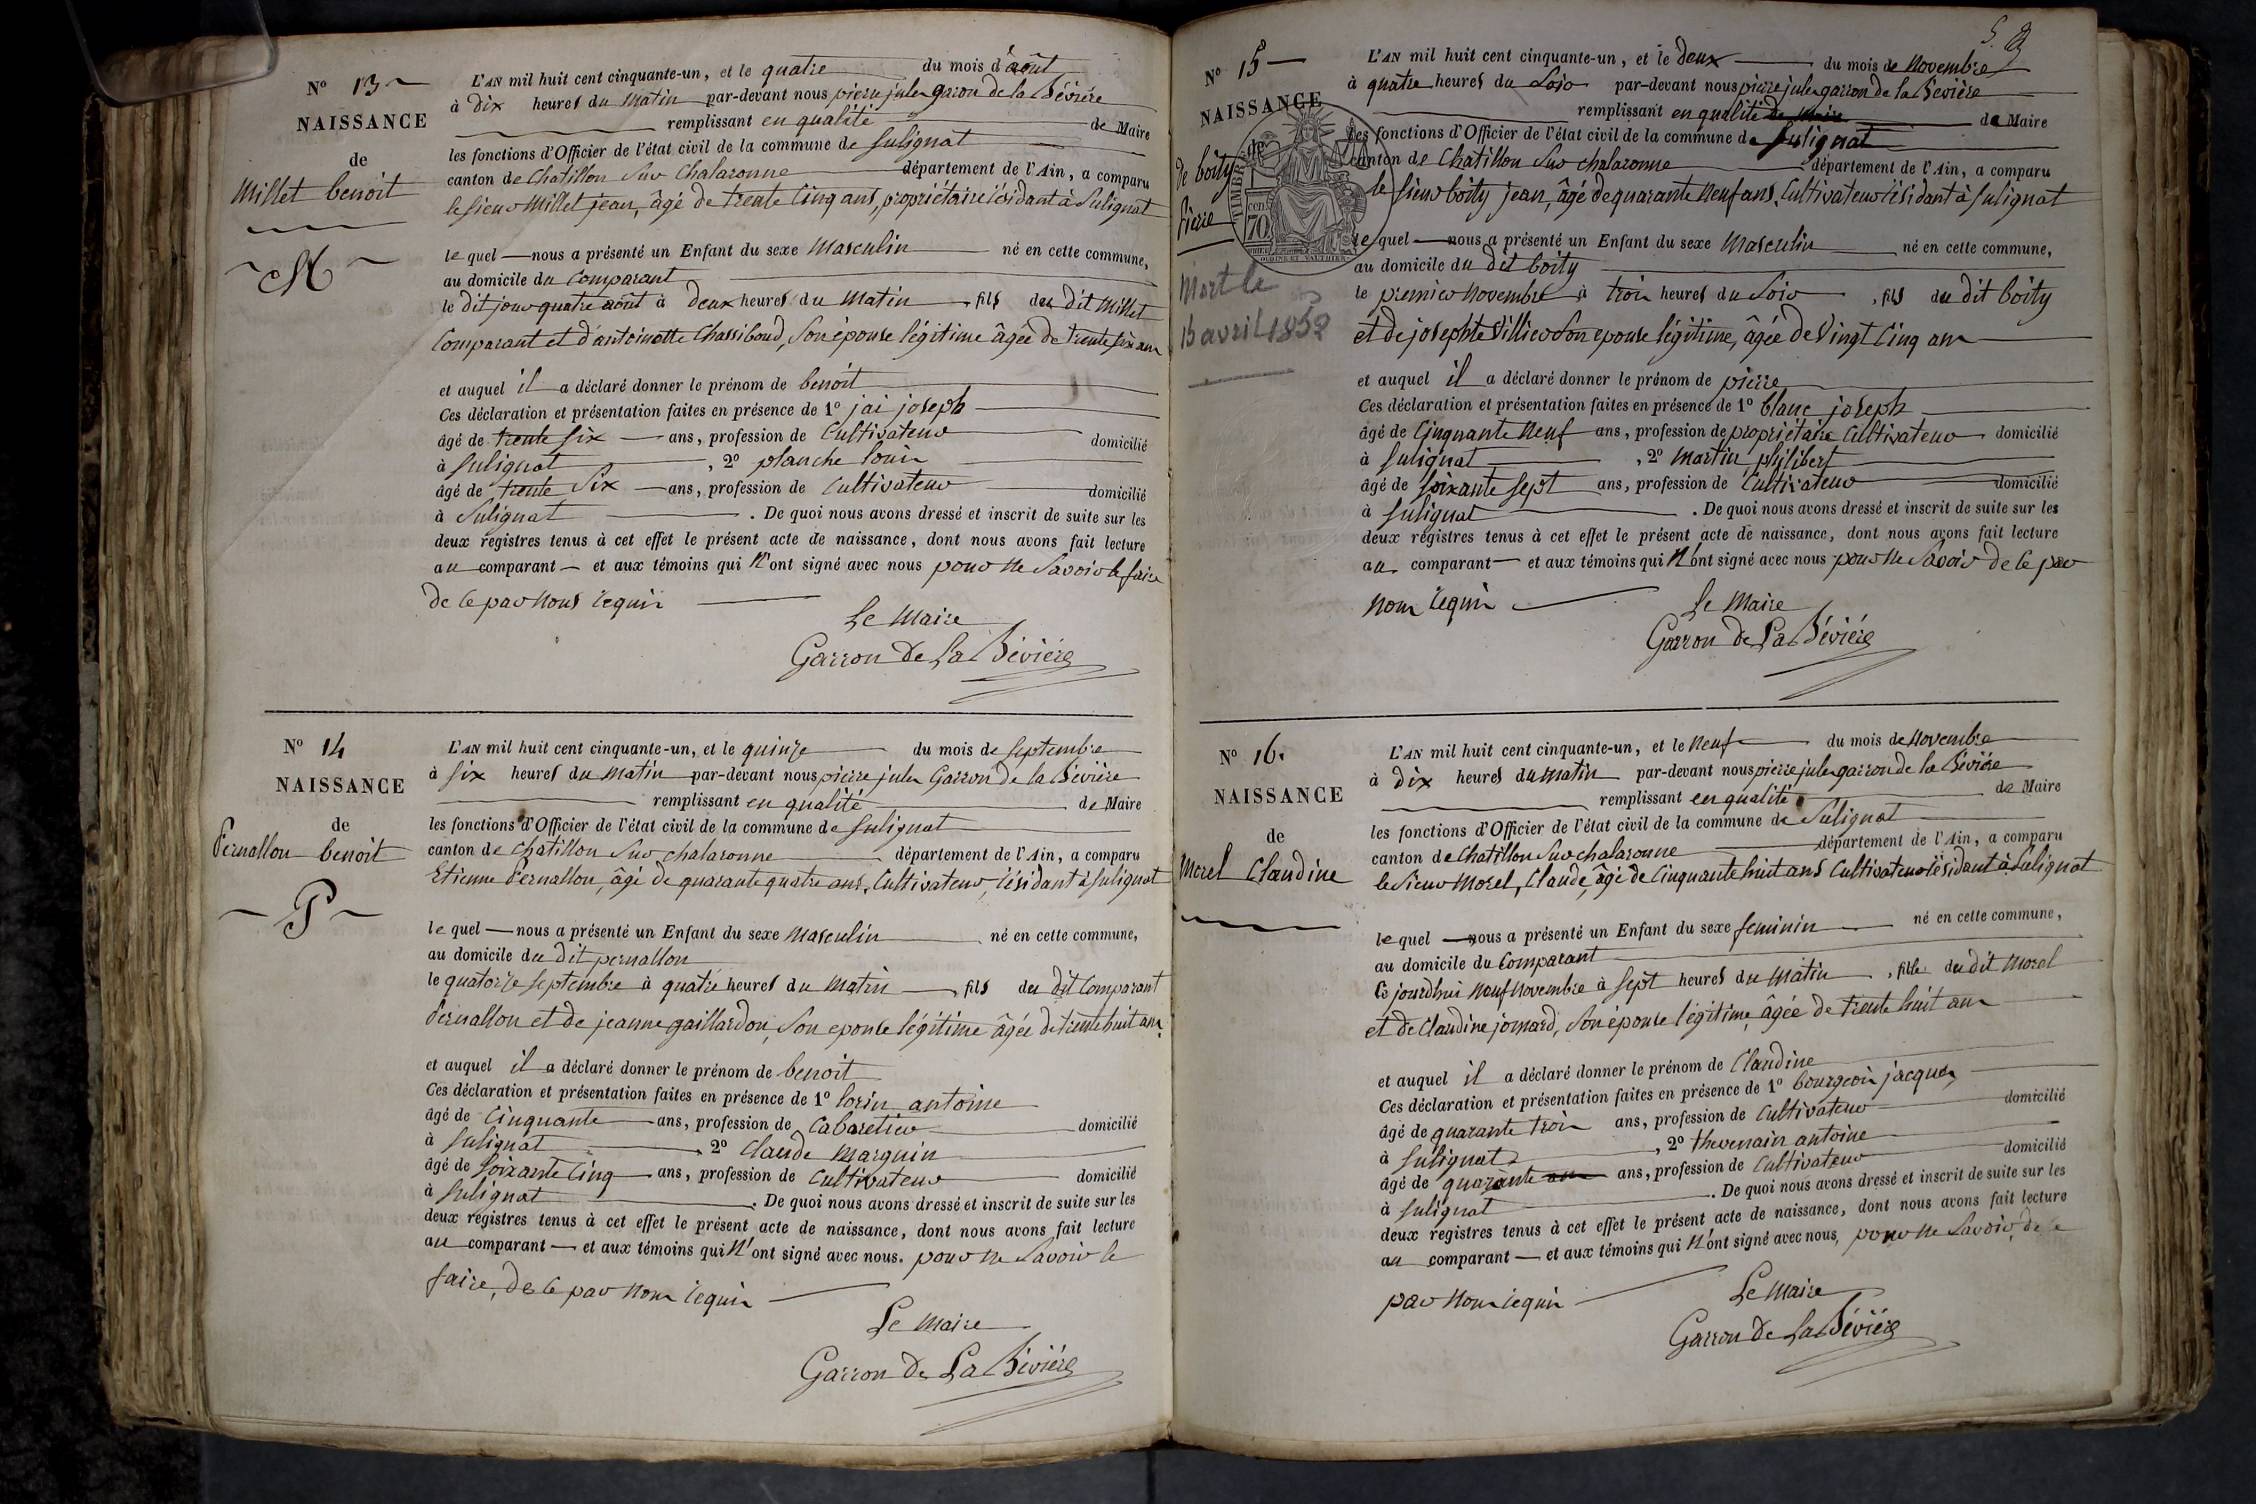 N° 13
NAISSANCE
de
Millet benoit
M
L'AN mil huit cent cinquante-un, et le quatre du mois d'août
à dix heures du matin par-devant nous pierre jules garron de la Bévière
remplissant en qualité de Maire
les fonctions d'Officier de l'état civil de la commune de Sulignat
canton de Chatillon Sur Chalaronne département de l'Ain, a comparu
le sieur Millet jean, âgé de trente cinq ans, propriétaire résidant à Sulignat
le quel nous a présenté un Enfant du sexe Masculin né en cette commune,
au domicile du Comparant
le dit jour quatre août à deux heures du Matin, fils du dit Millet
Comparant et d'antoinette Chassiboud, Son épouse légitime âgée de trente six ans
et auquel il a déclaré donner le prénom de benoit
Ces déclaration et présentation faites en présence de 1° jai joseph
âgé de trente six ans, profession de Cultivateur domicilié
à Sulignat, 2° planche louis
âgé de trente Six ans, profession de Cultivateur domicilié
à Sulignat. De quoi nous avons dressé et inscrit de suite sur les
deux registres tenus à cet effet le présent acte de naissance, dont nous avons fait lecture
au comparant et aux témoins qui n'ont signé avec nous pour ne Savoir le faire
de ce par nous requis
Le Maire
Garron de La Bévière
N° 14
NAISSANCE
de
Pernallon benoit
P
L'AN mil huit cent cinquante-un, et le quinze du mois de Septembre
à Six heures du Matin par-devant nous pierre jules Garron de la Bévière
remplissant en qualité de Maire
les fonctions d'Officier de l'état civil de la commune de Sulignat
canton de Chatillon Sur chalaronne département de l'Ain, a comparu
Etienne Pernallon, âgé de quarante quatre ans, Cultivateur, résidant à Sulignat
le quel nous a présenté un Enfant du sexe Masculin né en cette commune,
au domicile du dit pernallon
le quatorze Septembre à quatre heures du Matin, fils du dit Comparant
Pernallon et de jeanne gaillardon, Son epouse légitime âgée de trente huit ans
et auquel il a déclaré donner le prénom de benoit
Ces déclaration et présentation faites en présence de 1° lorin antoine
âgé de Cinquante ans, profession de Cabaretier domicilié
à Sulignat 2° Claude Marguin
âgé de Soixante Cinq ans, profession de Cultivateur domicilié
à Sulignat. De quoi nous avons dressé et inscrit de suite sur les
deux registres tenus à cet effet le présent acte de naissance, dont nous avons fait lecture
au comparant et aux témoins qui n'ont signé avec nous. pour ne Savoir le
faire, de ce par nous requis
Le Maire
Garron de La Bévière
N° 15
NAISSANCE
de
de boity
Pierre
Mort le
15 avril 1852
TIMBRE
70
L'AN mil huit cent cinquante-un, et le deux du mois de Novembre
à quatre heures du Soir par-devant nous pierre jules garron de la Bevière
remplissant en qualité de Maire
les fonctions d'Officier de l'état civil de la commune de Sulignat
canton de Chatillon Sur chalaronne département de l'Ain, a comparu
le sieur boity jean, âgé de quarante Neuf ans, Cultivateur résidant à Sulignat
le quel nous a présenté un Enfant du sexe Masculin né en cette commune,
au domicile du dit boity
le premier Novembre à trois heures du Soir, fils du dit boity
et de josephte Villier Son epouse légitime, âgée de Vingt Cinq ans
et auquel il a déclaré donner le prénom de pierre
Ces déclaration et présentation faites en présence de 1° blanc joseph
âgé de Cinquante Neuf ans, profession de propriétaire Cultivateur domicilié
à Sulignat, 2° Martin philibert
âgé de Soixante Sept ans, profession de Cultivateur domicilié
à Sulignat. De quoi nous avons dressé et inscrit de suite sur les
deux régistres tenus à cet effet le présent acte de naissance, dont nous avons fait lecture
au comparant et aux témoins qui N'ont signé avec nous pour ne Savoir de ce par
nous requis
Le Maire
Garron de La Bévière
N° 16
NAISSANCE
de
Morel Claudine
L'AN mil huit cent cinquante-un, et le Neuf du mois de Novembre
à dix heures du Matin par-devant nous pierre jules garron de la Bévière
remplissant en qualité de Maire
les fonctions d'Officier de l'état civil de la commune de Sulignat
canton de Chatillon Sur chalaronne département de l'Ain, a comparu
le Sieur Morel, Claude, âgé de Cinquante huit ans Cultivateur résidant à Sulignat
le quel nous a présenté un Enfant du sexe feminin né en cette commune,
au domicile du Comparant
Ce jourdhui Neuf Novembre à Sept heures du Matin, fille du dit Morel
et de Claudine jomard, Son épouse légitime, âgée de trente huit ans
et auquel il a déclaré donner le prénom de Claudine
Ces déclaration et présentation faites en présence de 1° bourgeois jacques
âgé de quarante trois ans, profession de Cultivateur domicilié
à Sulignat, 2° thevenain antoine
âgé de quarante ans, profession de Cultivateur domicilié
à Sulignat. De quoi nous avons dressé et inscrit de suite sur les
deux registres tenus à cet effet le présent acte de naissance, dont nous avons fait lecture
au comparant et aux témoins qui N'ont signé avec nous, pour ne Savoir, de ce
par nous requis
Le Maire
Garron de La Bévière